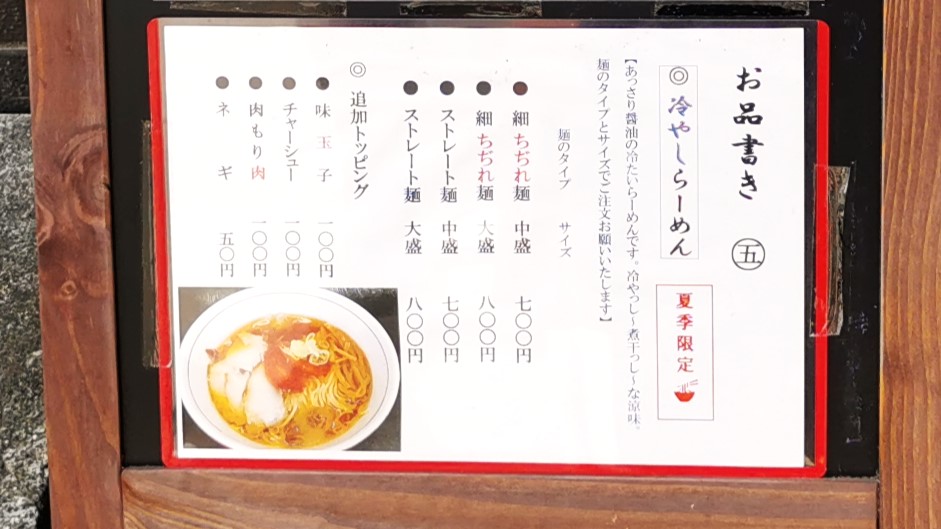 お品書き ㊄
◎ 冷やしらーめん
夏季限定
【あっさり醤油の冷たいらーめんです。冷やっし～煮干っし～な涼味。
麺のタイプとサイズでご注文お願いいたします】
麺のタイプ サイズ
● 細ちぢれ麺 中盛 七〇〇円
● 細ちぢれ麺 大盛 八〇〇円
● ストレート麺 中盛 七〇〇円
● ストレート麺 大盛 八〇〇円
◎ 追加トッピング
● 味玉子 一〇〇円
● チャーシュー 一〇〇円
● 肉もり肉 一〇〇円
● ネギ 五〇円